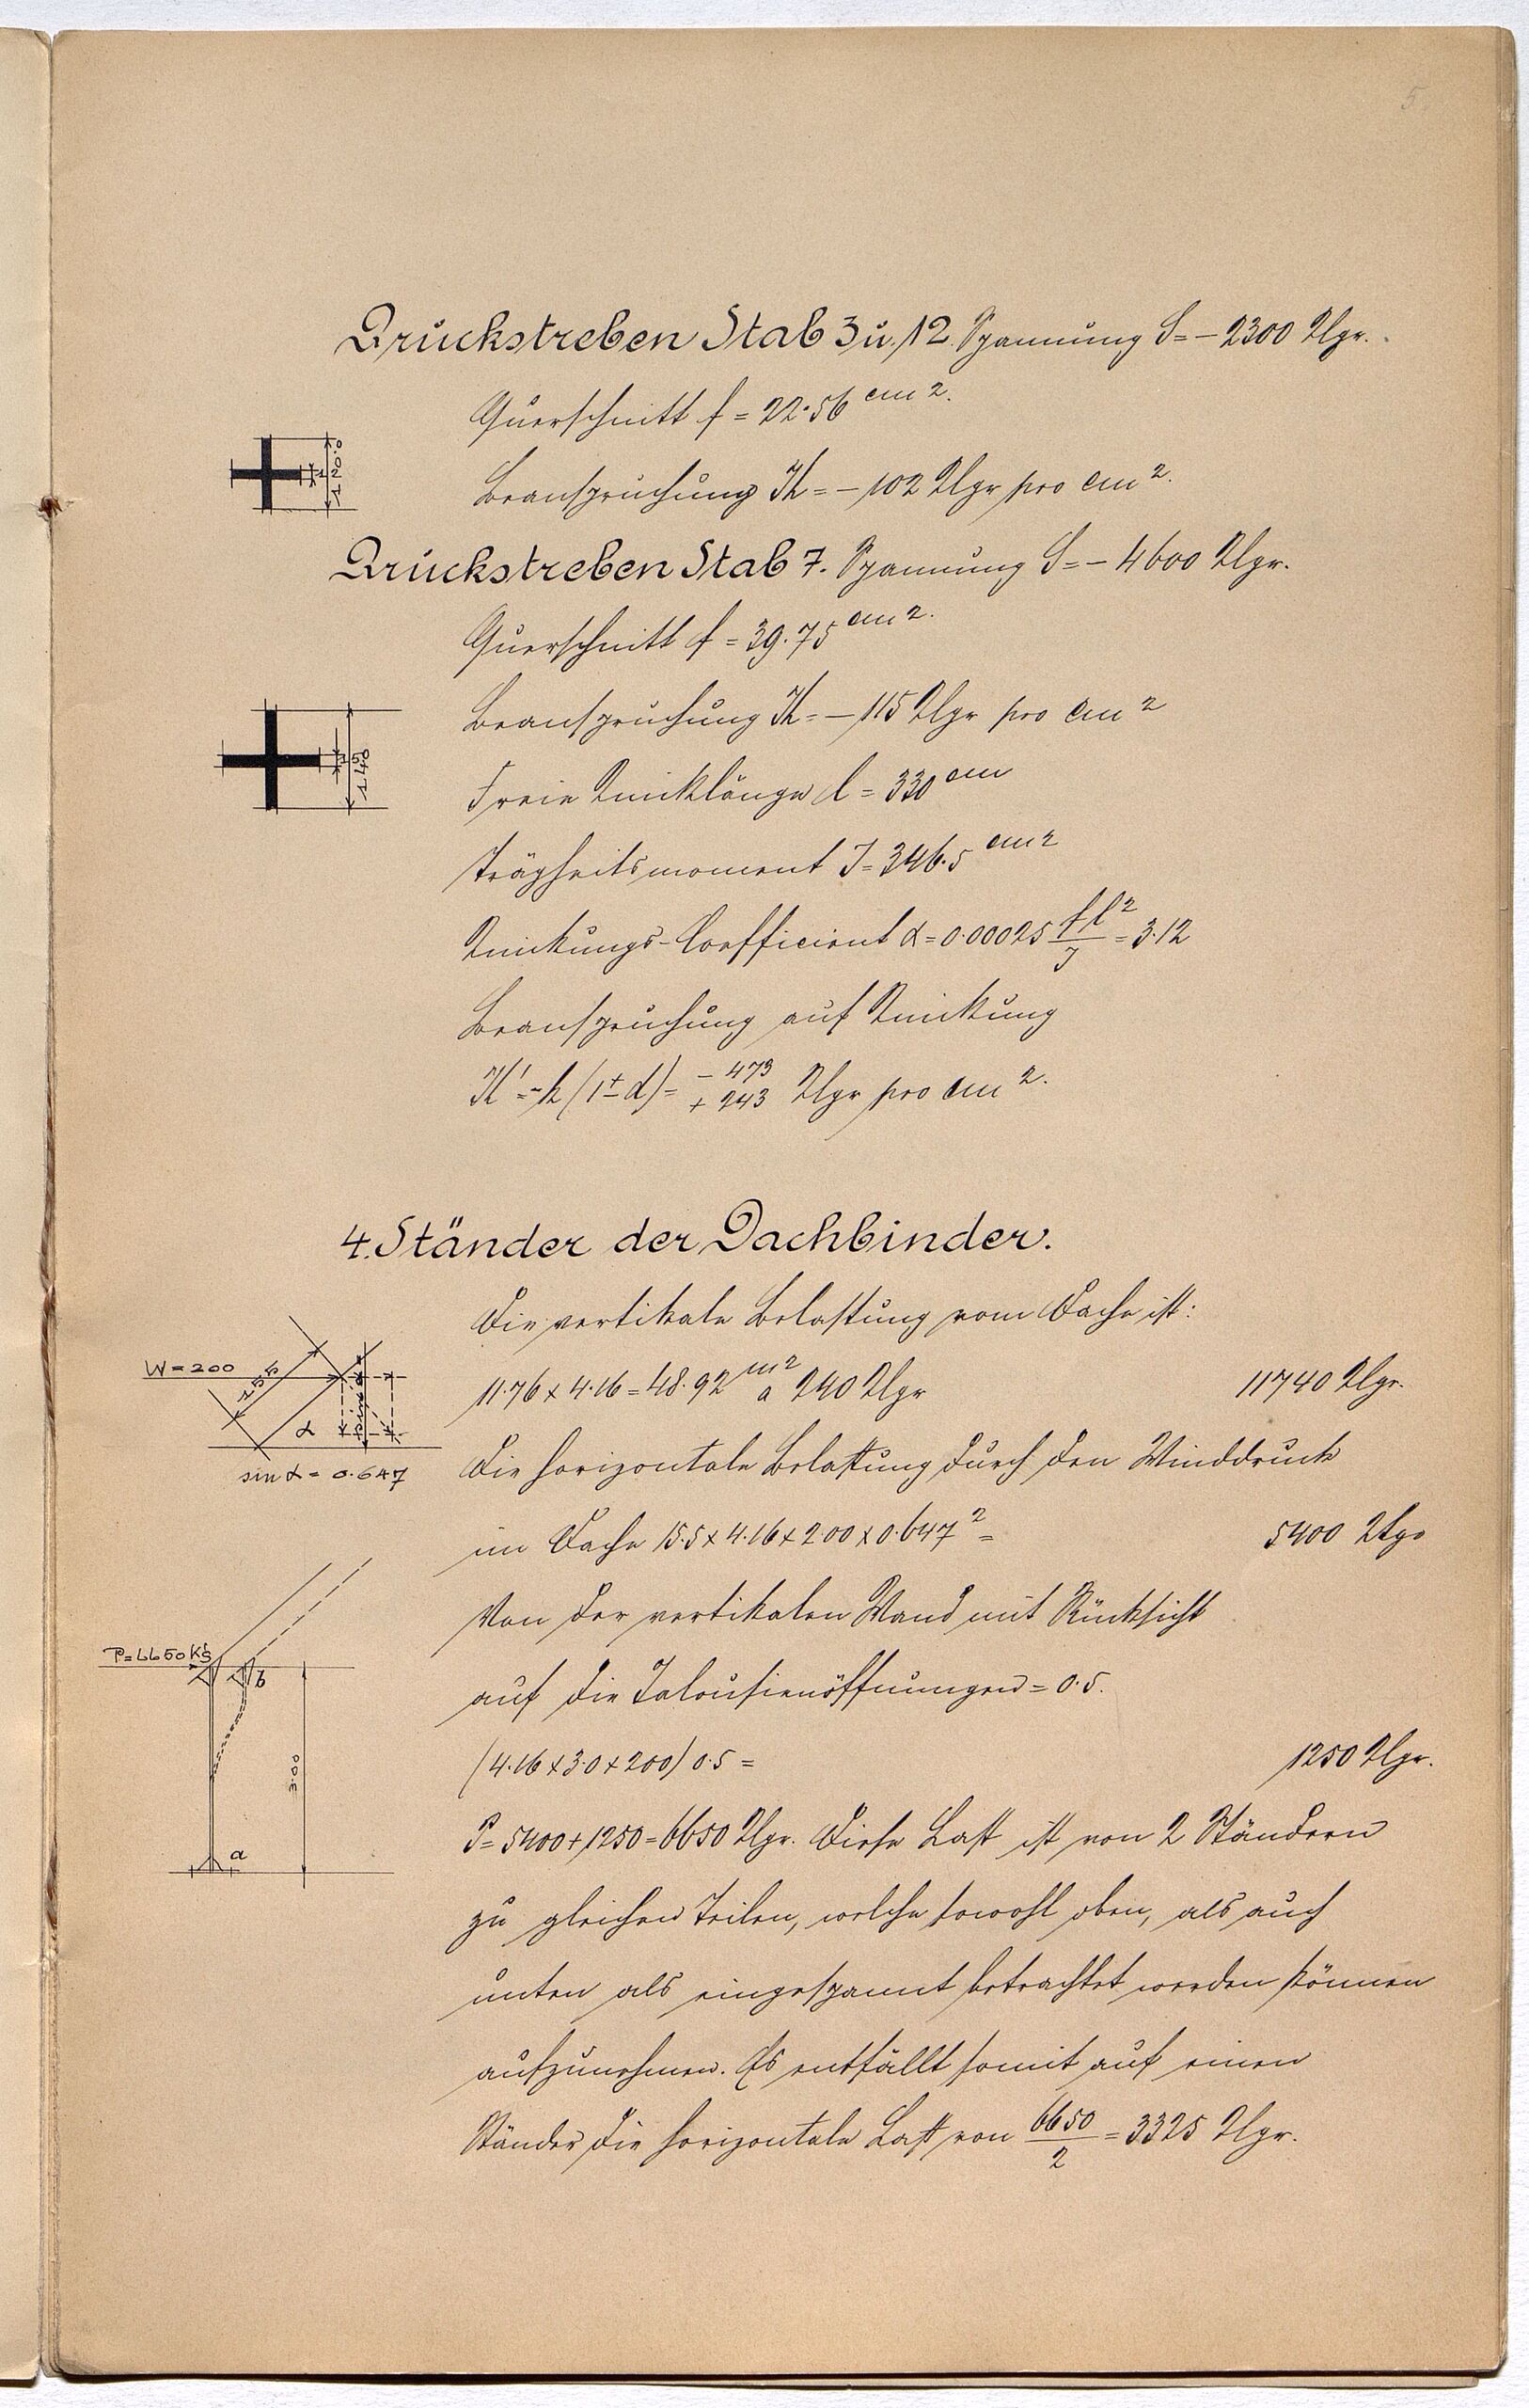 5.
Druckstreben Stab 3 u. 12. Spannung S = – 2300 Klgr.
Querschnitt f = 22·56 cm 2.
Beanspruchung K = – 102 Klgr pro cm 2.
Druckstreben Stab 7. Spannung S = – 4600 Klgr.
Querschnitt f = 39.75 cm 2.
Beanspruchung K = – 115 Klgr pro cm 2
Freie Knicklänge l = 330 cm
Trägheitsmoment J = 346.5 cm 2
Knickungs-Coefficient α = 0.00025 f l²/J = 3.12
Beanspruchung auf Knickung
K' = k (1 ± α) = – 473 + 243 Klgr pro cm 2.
4. Ständer der Dachbinder.
Die vertikale Belastung vom Dache ist:
W = 200
11.76 x 4.16 = 48.92 m2 a 240 Klgr 11740 Klgr.
α
sin α = 0.647
Die horizontale Belastung durch den Winddruck
im Dache 15.5 x 4.16 x 200 x 0.647 2 = 5400 Klgr
Von der vertikalen Wand mit Rücksicht
P = 6650 Kg
b
auf die Jalousienöffnungen = 0.5.
3.00
(4.16 x 3.0 x 200) 0.5 = 1250 Klgr.
P = 5400 + 1250 = 6650 Klgr. Diese Last ist von 2 Ständern
a
zu gleichen Teilen, welche sowohl oben, als auch
unten als eingespannt betrachtet werden können
aufzunehmen. Es entfällt somit auf einen
Ständer die horizontale Last von 6650/2 = 3325 Klgr.